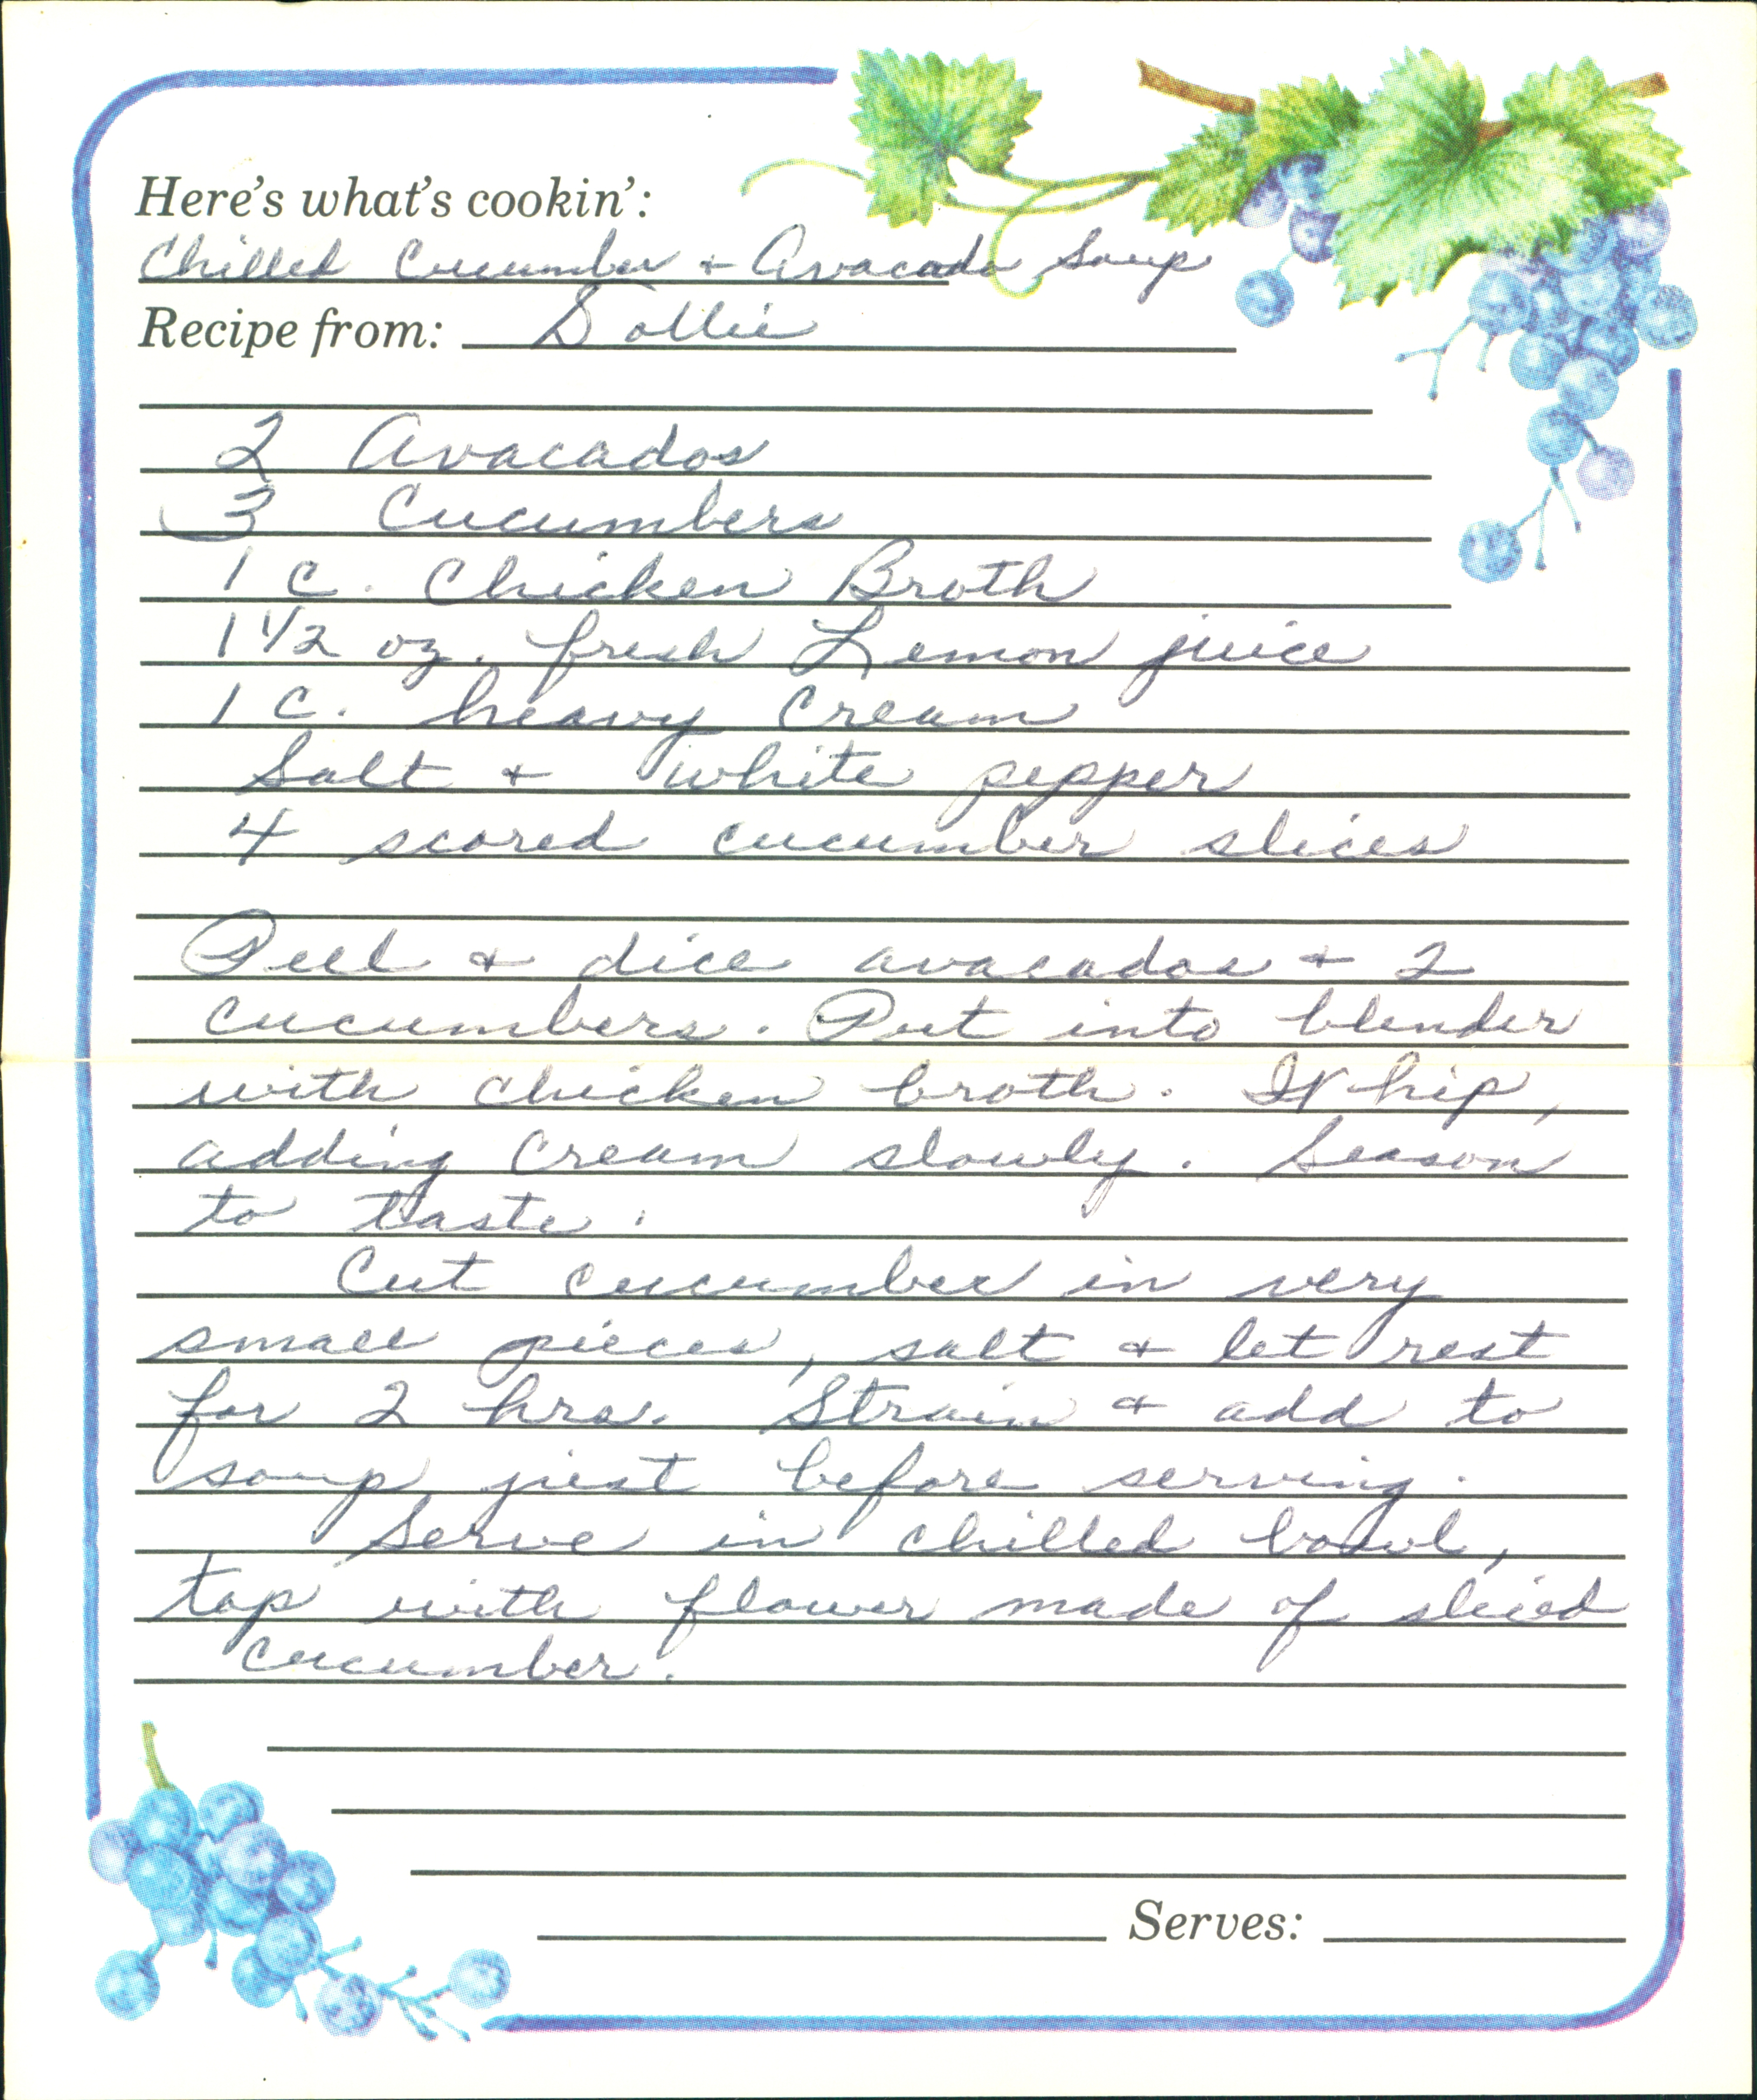 Here's what's cookin':
Chilled Cucumber + Avacado Soup
Recipe from: Dollie
2 Avacados
3 Cucumbers
1 c. Chicken Broth
1 1/2 oz. fresh Lemon juice
1 c. heavy Cream
Salt + White pepper
4 scored cucumber slices
Peel + dice avacados + 2
cucumbers. Put into blender
with chicken broth. Whip,
adding cream slowly. Season
to taste.
Cut cucumber in very
small pieces, salt + let rest
for 2 hrs. Strain + add to
soup just before serving.
Serve in chilled bowl,
top with flower made of sliced
cucumber.
Serves: